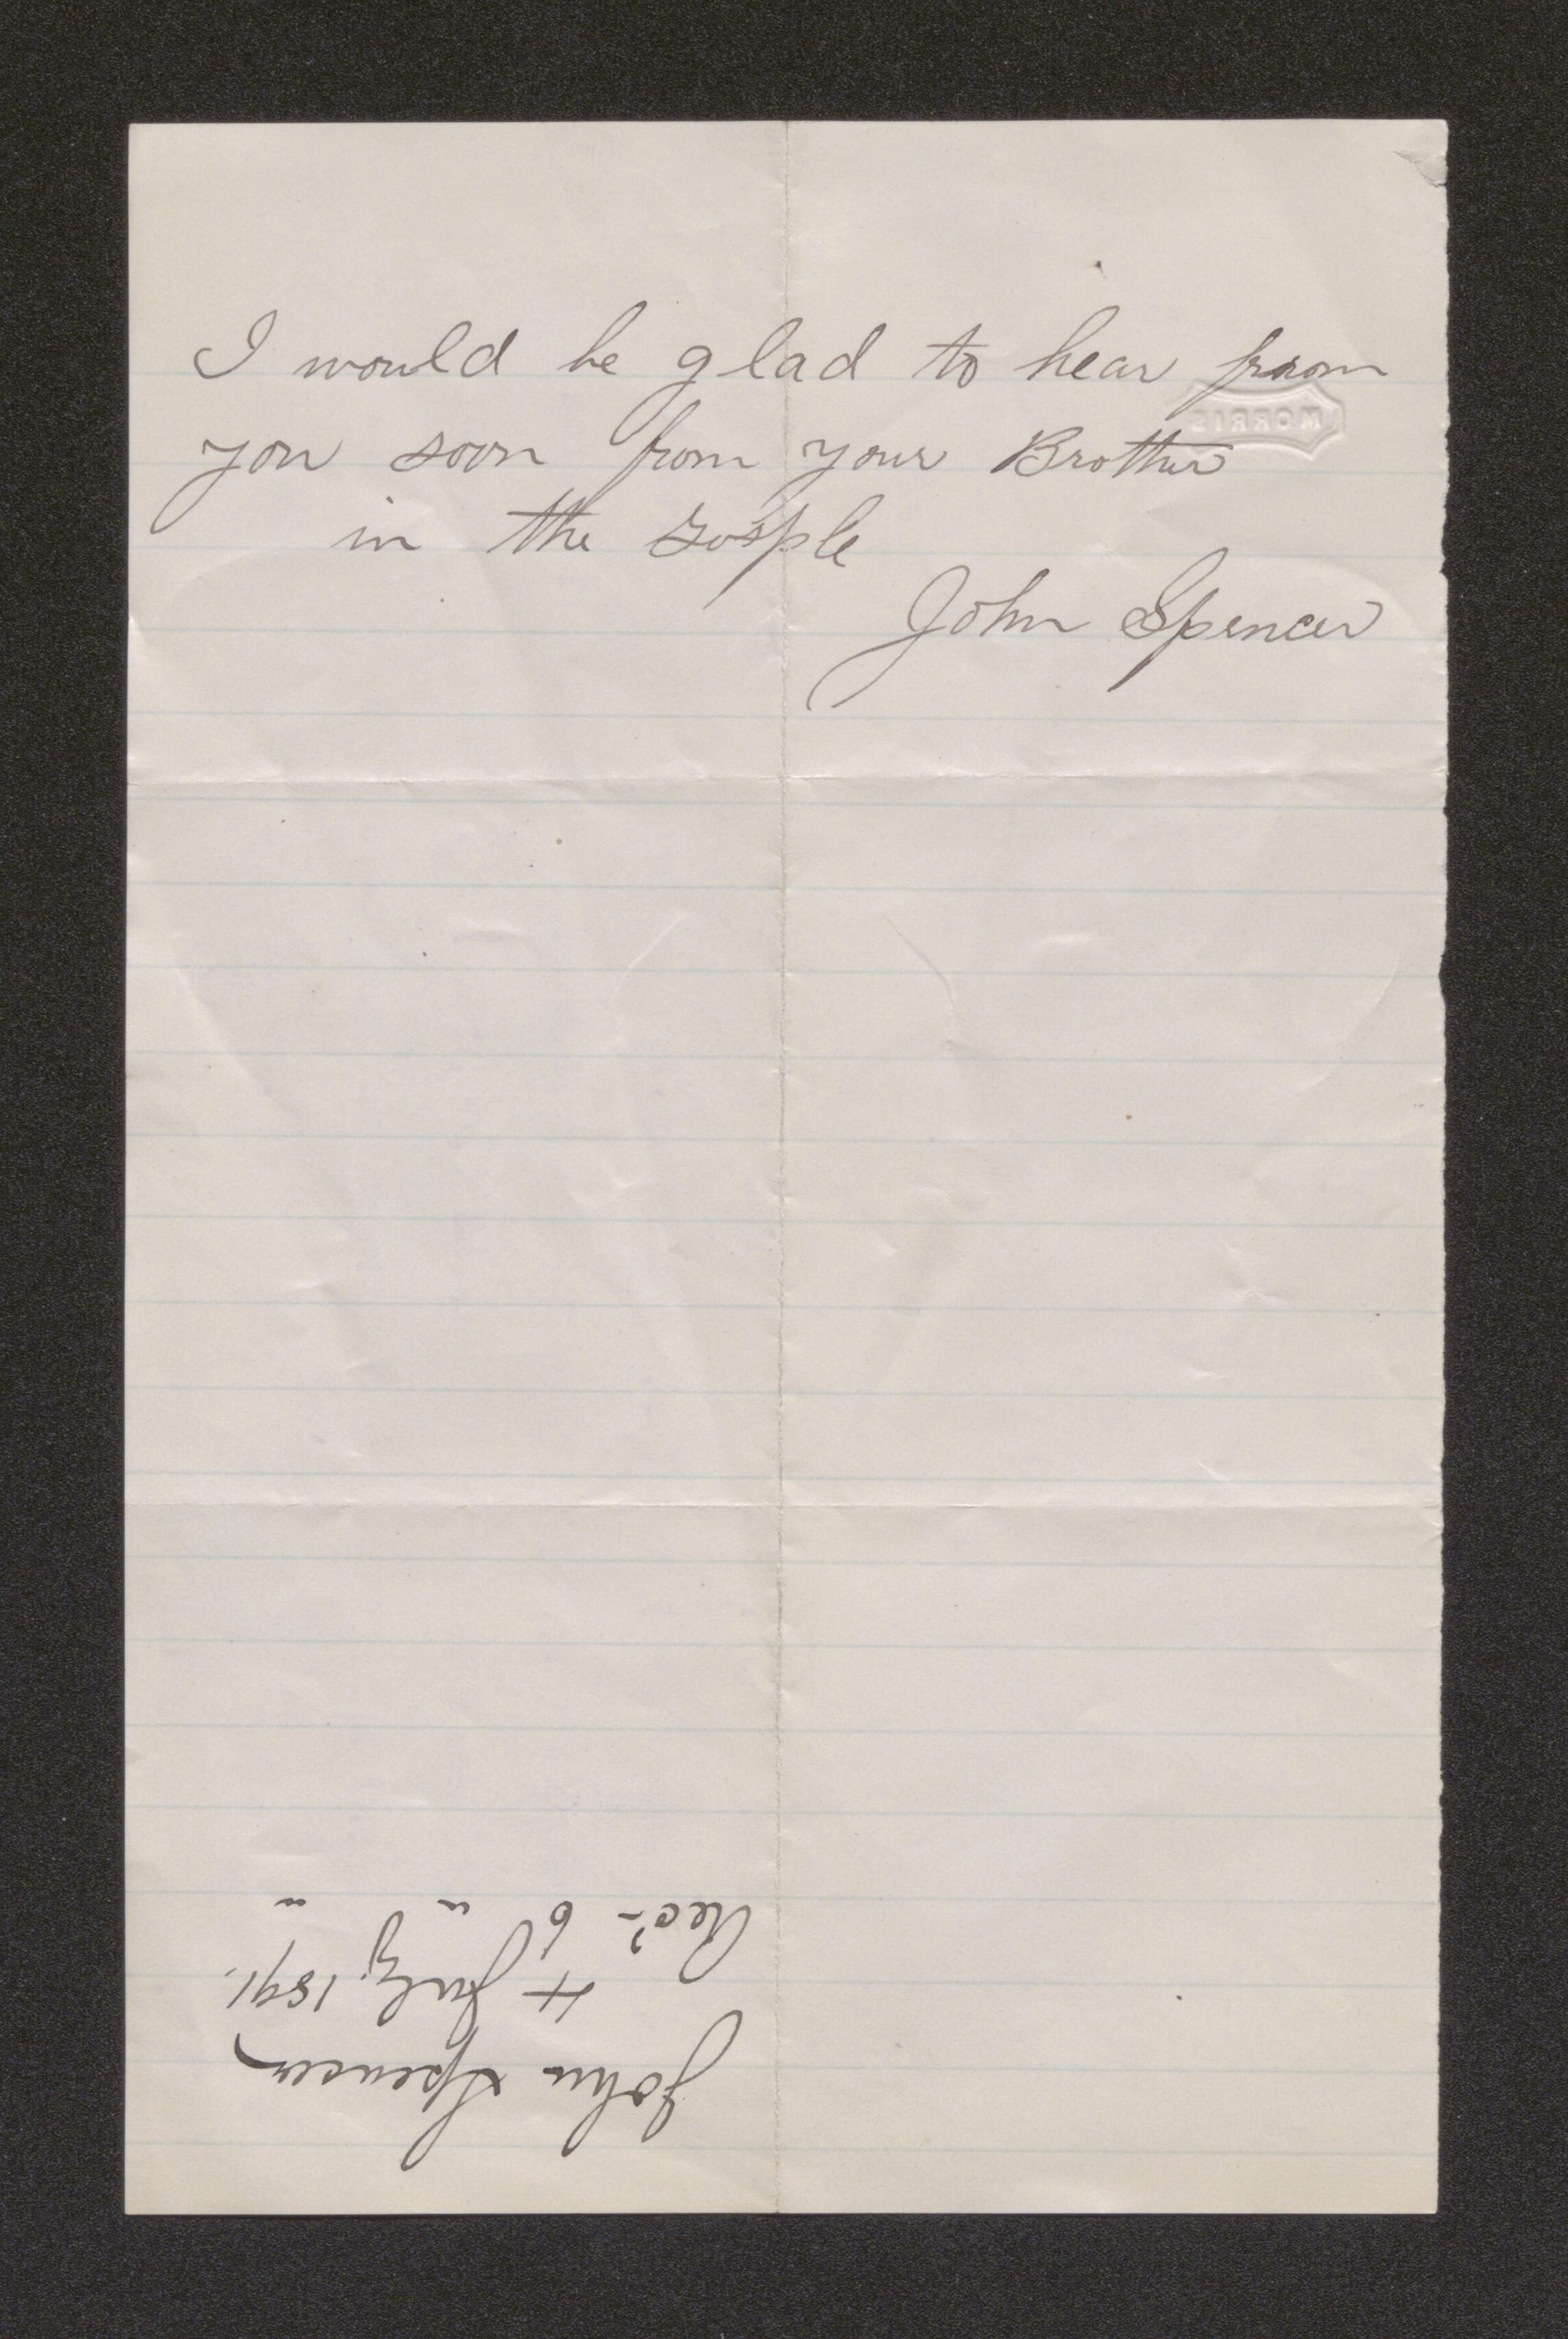 I would be glad to hear from
you soon from your Brother
in the gosple
John Spencer
MORRIS
John Spencer
4 July, 1891.
Rec'd 6 " "